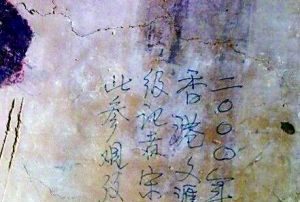 二〇〇四年
香港文匯
级记者宋
此参观